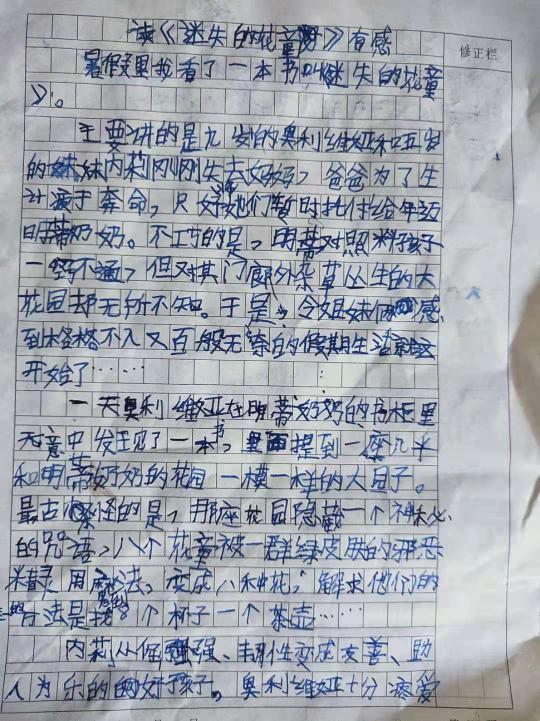 读《迷失的花童》有感
修正栏
暑假里我看了一本书叫《迷失的花童
》。
主要讲的是九岁的奥利维娅和五岁
的妹妹内莉刚刚失去妈妈,爸爸为了生
计疲于奔命,只好她们暂时托付给年迈
明蒂奶奶。不巧的是,明蒂对照料孩子
一窍不通,但对其门廊外杂草丛生的大
花园却无所不知。于是,令姐妹俩感
到格格不入又百般无聊的假期生活就这
开始了……
一天奥利维娅在明蒂奶奶的书柜里
无意中发现了一本书,里面提到一座几乎
和明蒂奶奶的花园一模一样的大园子。
最古怪的是,那座花园隐藏一个神秘
的咒语,八个花童被一群绿皮肤的邪恶
精灵用魔法,变成八种花,解救他们的
方法是找 个杯子一个茶壶……
内莉从倔强、任性变成友善、助
人为乐的的好孩子。奥利维娅十分疼爱